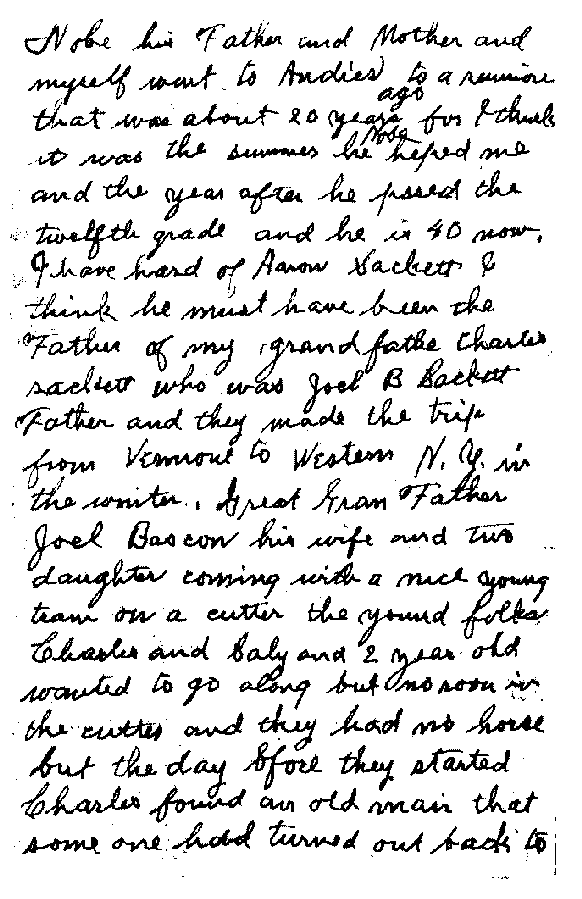 Nobe his Father and Mother and
myself went to Andies to a reunion
ago
that was about 20 years for I think
Nobe
it was the summer he heped me
and the year after he pssed the
twelfth grade and he is 40 now.
I have hard of Aaron Sackett I
think he must have been the
Father of my grand fathe Charles
sackett who was Joel B Sackett
Father and they made the trip
from Vermont to Western N. Y. in
the winter. Great Gran Father
Joel Bascon his wife and two
daughter coming with a nice young
team on a cutter the yound folks
Charles and Saly and 2 year old
wanted to go along but no roon in
the cutter and they had no horse
but the day bfore they started
Charles found an old mair that
some one hadd turned out back to